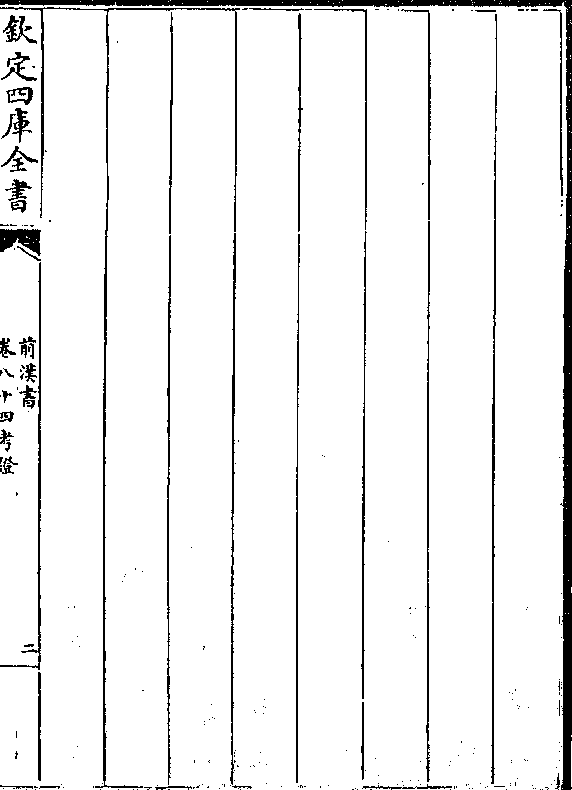 欽定四庫全書
前漢書
卷八十四考證
二